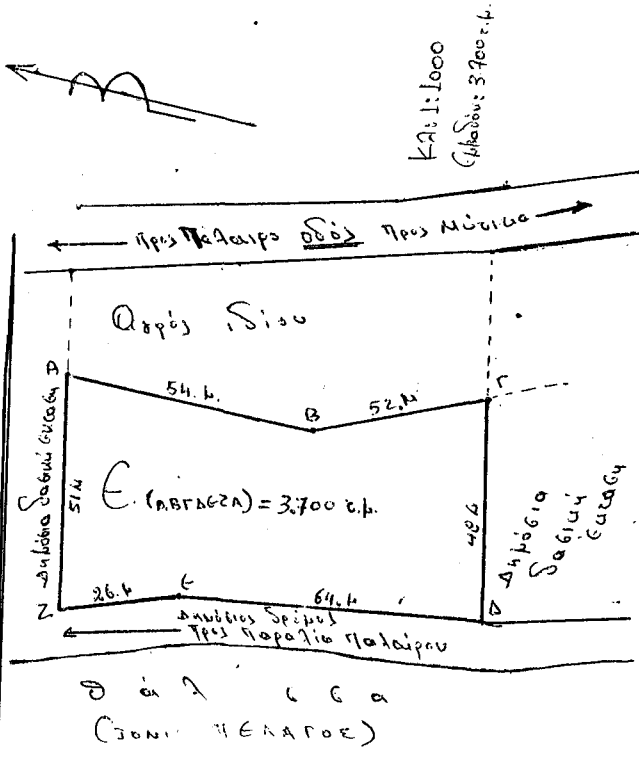 Κλ: 1:1000
Εμβαδόν: 3.700 τ.μ.
Προς Πάλαιρο οδός Προς Μύτικα
Αγρός ιδίου
Α
54.μ.
Β
52.μ
Γ
Δημόσια δασική έκταση
51μ
Ε. (ΑΒΓΔΕΖΑ) = 3.700 τ.μ.
48μ
Δημόσια
δασική
έκταση
Ζ
26.μ
Ε
64.μ
Δ
Δημόσιος δρόμος
Προς Παραλία Παλαίρου
θ ά λ α σ σ α
(ΙΟΝΙ ΠΕΛΑΓΟΣ)